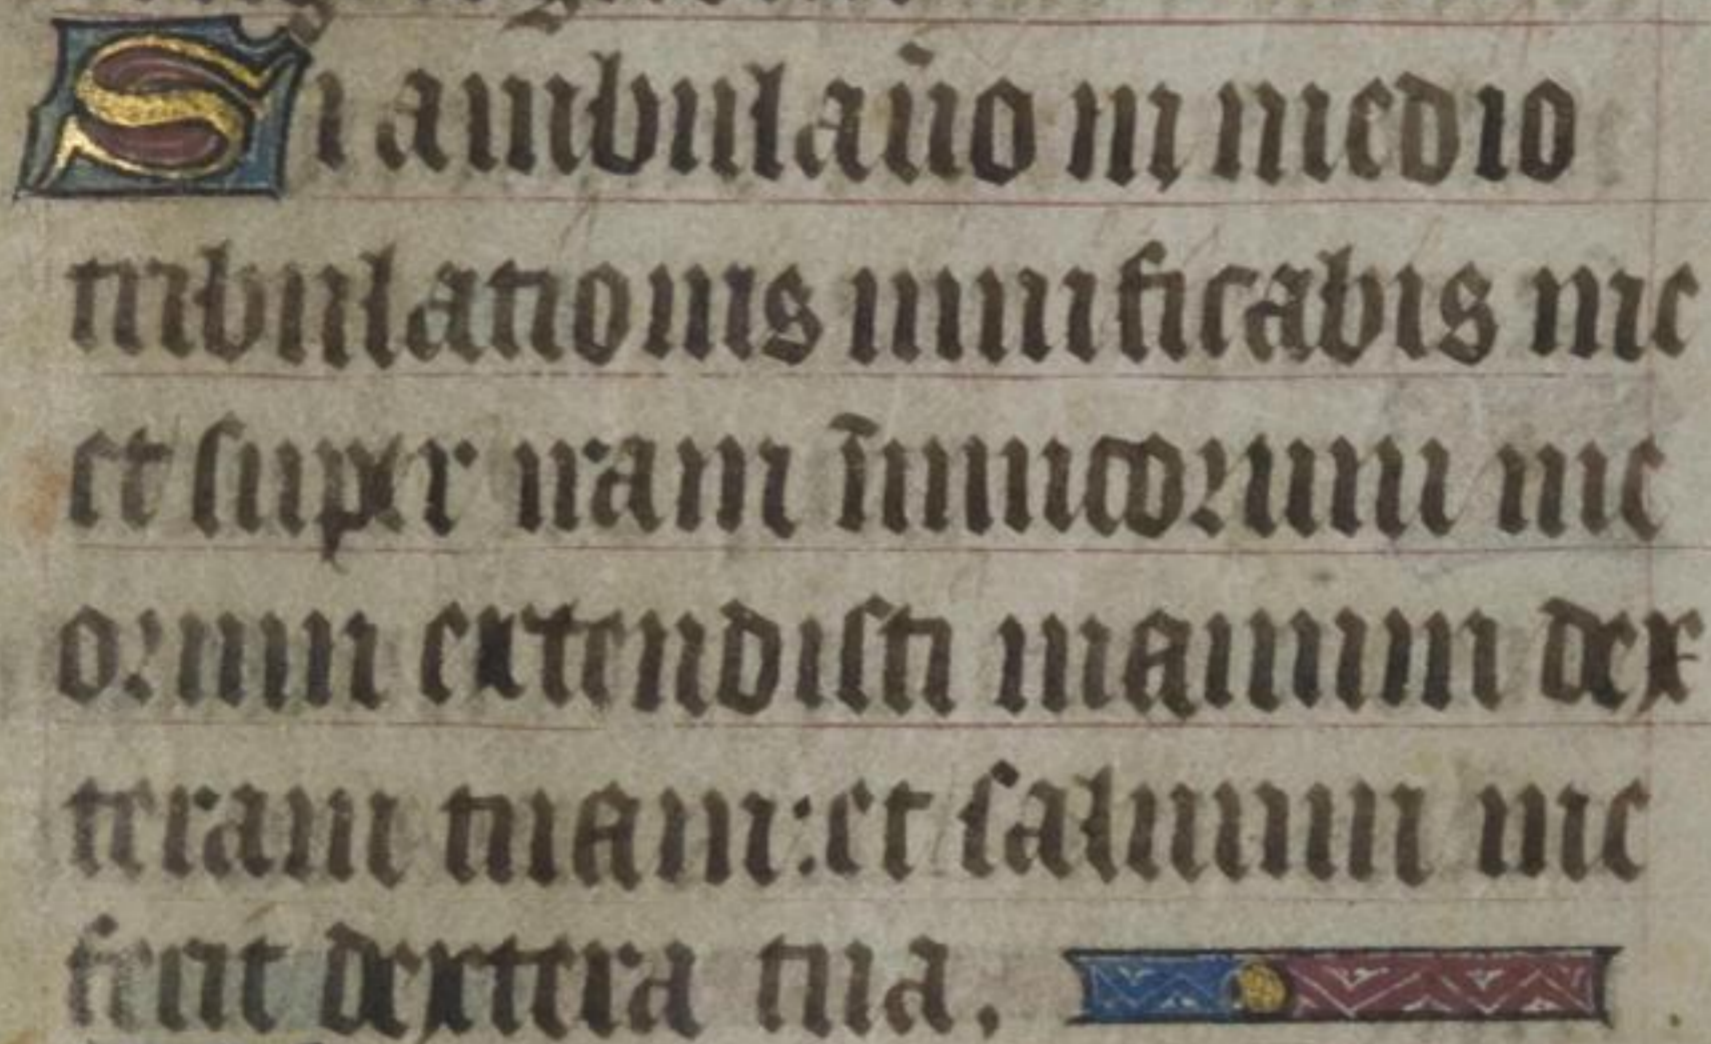 Si ambulau̅o in medio
tribulationis uiuificabis me
et super iram i̅nimicorum me
orum extendisti manum dex
teram tuam: et saluum me
fecit dextera tua.